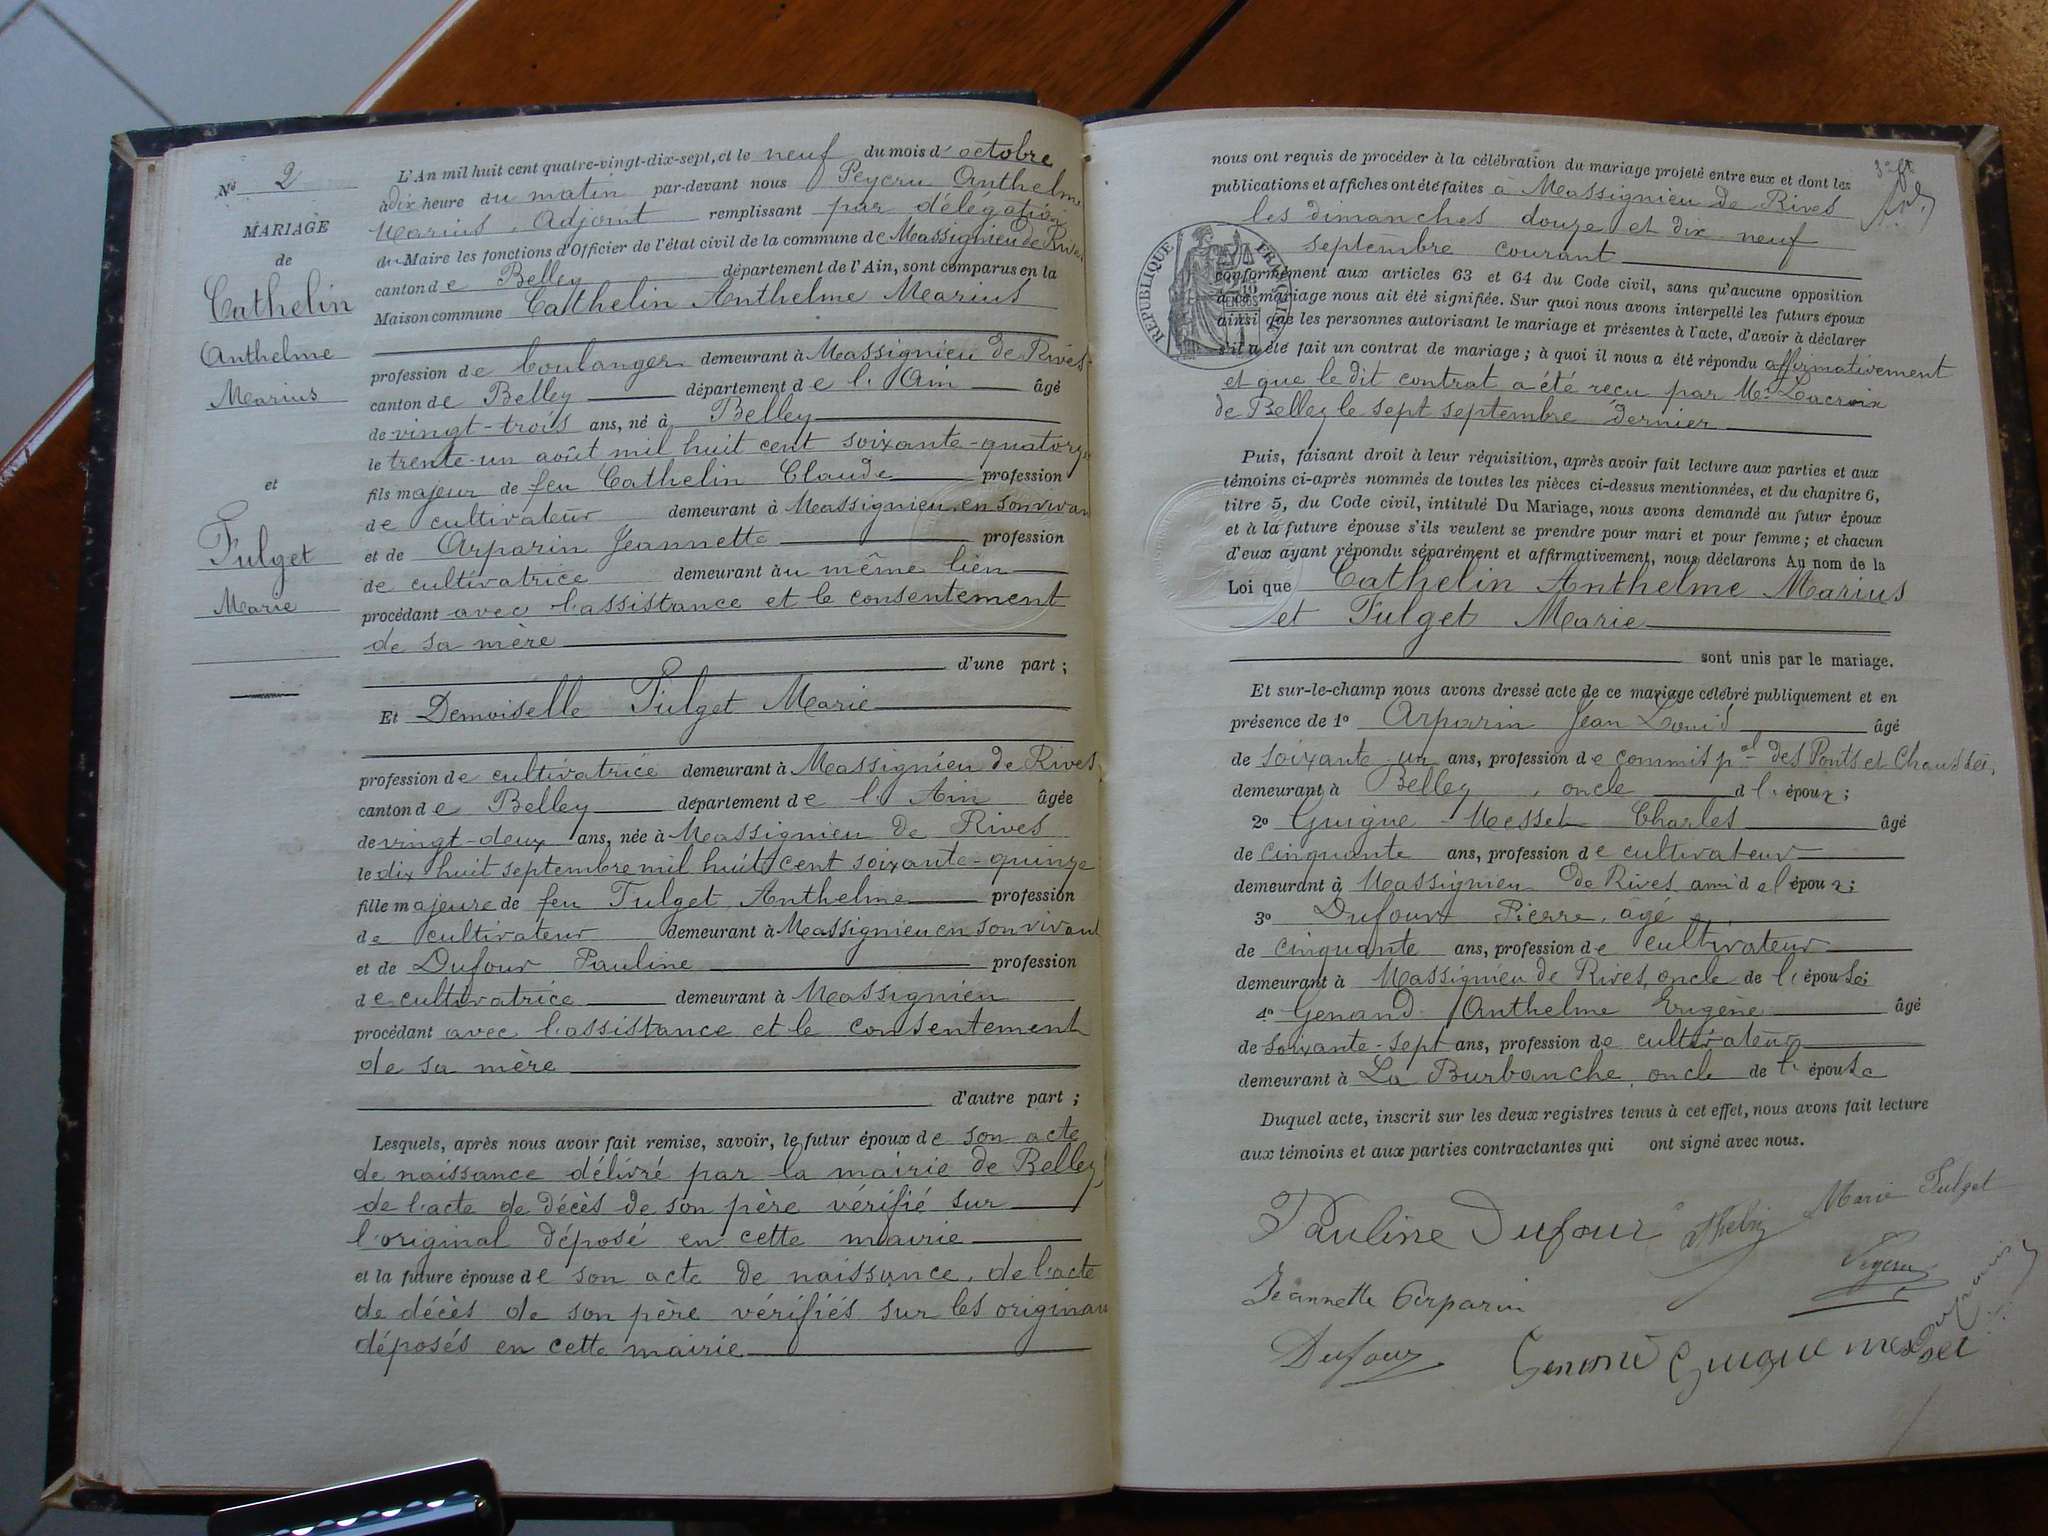 Nº 2
MARIAGE
de
Cathelin
Anthelme
Marius
et
Fulget
Marie
L'An mil huit cent quatre-vingt-dix-sept, et le neuf du mois d'octobre
à dix heure du matin par-devant nous Peycru Anthelme
Marius, Adjoint remplissant par délégation
du Maire les fonctions d'Officier de l'état civil de la commune de Massignieu de Rives
canton de Belley département de l'Ain, sont comparus en la
Maison commune Cathelin Anthelme Marius
profession de boulanger demeurant à Massignieu de Rives
canton de Belley département de l'Ain âgé
de vingt-trois ans, né à Belley
le trente-un août mil huit cent soixante-quatorze
fils majeur de feu Cathelin Claude profession
de cultivateur demeurant à Massignieu en son vivan
et de Arparin Jeannette profession
de cultivatrice demeurant au même lieu
procédant avec l'assistance et le consentement
de sa mère
d'une part ;
Et Demoiselle Fulget Marie
profession de cultivatrice demeurant à Massignieu de Rives
canton de Belley département de l'Ain âgée
de vingt-deux ans, née à Massignieu de Rives
le dix huit septembre mil huit cent soixante-quinze
fille majeure de feu Fulget Anthelme profession
de cultivateur demeurant à Massignieu en son vivant
et de Dufour Pauline profession
de cultivatrice demeurant à Massignieu
procédant avec l'assistance et le consentement
de sa mère
d'autre part ;
Lesquels, après nous avoir fait remise, savoir, le futur époux de son acte
de naissance délivré par la mairie de Belley,
de l'acte de décès de son père vérifié sur
l'original déposé en cette mairie
et la future épouse de son acte de naissance, de l'acte
de décès de son père vérifiés sur les originau
déposés en cette mairie
nous ont requis de procéder à la célébration du mariage projeté entre eux et dont les
publications et affiches ont été faites à Massignieu de Rives
les dimanches douze et dix neuf
septembre courant
RÉPUBLIQUE FRANÇAISE
conformément aux articles 63 et 64 du Code civil, sans qu'aucune opposition
à ce mariage nous ait été signifiée. Sur quoi nous avons interpellé les futurs époux
ainsi que les personnes autorisant le mariage et présentes à l'acte, d'avoir à déclarer
s'il a été fait un contrat de mariage ; à quoi il nous a été répondu affirmativement
et que le dit contrat a été reçu par Me Lacroix
de Belley le sept septembre dernier
Puis, faisant droit à leur réquisition, après avoir fait lecture aux parties et aux
témoins ci-après nommés de toutes les pièces ci-dessus mentionnées, et du chapitre 6,
titre 5, du Code civil, intitulé Du Mariage, nous avons demandé au futur époux
et à la future épouse s'ils veulent se prendre pour mari et pour femme ; et chacun
d'eux ayant répondu séparément et affirmativement, nous déclarons Au nom de la
Loi que Cathelin Anthelme Marius
et Fulget Marie
sont unis par le mariage.
Et sur-le-champ nous avons dressé acte de ce mariage célébré publiquement et en
présence de 1º Arparin Jean Louis âgé
de soixante un ans, profession de commis pal des Ponts et Chaussées,
demeurant à Belley, oncle d l'époux ;
2º Guigue Messet Charles âgé
de cinquante ans, profession de cultivateur
demeurant à Massignieu de Rives ami de l'époux ;
3º Dufour Pierre, âgé
de cinquante ans, profession de cultivateur
demeurant à Massignieu de Rives, oncle de l'épouse
4º Genand Anthelme Eugène âgé
de soixante-sept ans, profession de cultivateur
demeurant à La Burbanche, oncle de l'épouse
Duquel acte, inscrit sur les deux registres tenus à cet effet, nous avons fait lecture
aux témoins et aux parties contractantes qui ont signé avec nous.
Pauline Dufour
Marie Fulget
Peycru
Jeannette Arparin
Dufour
Guigue messet